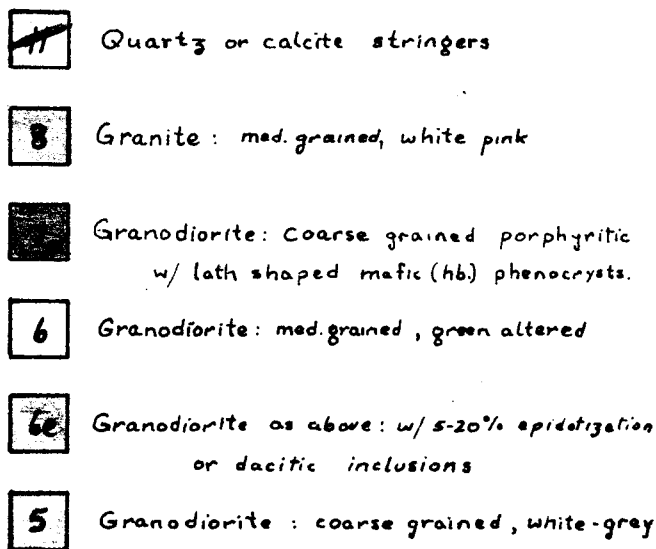 11 Quartz or calcite stringers
8 Granite: med. grained, white pink
Granodiorite: coarse grained porphyritic
w/ lath shaped mafic (hb.) phenocrysts.
6 Granodiorite: med. grained, green altered
6e Granodiorite as above: w/ 5-20% epidotization
or dacitic inclusions
5 Granodiorite: coarse grained, white-grey